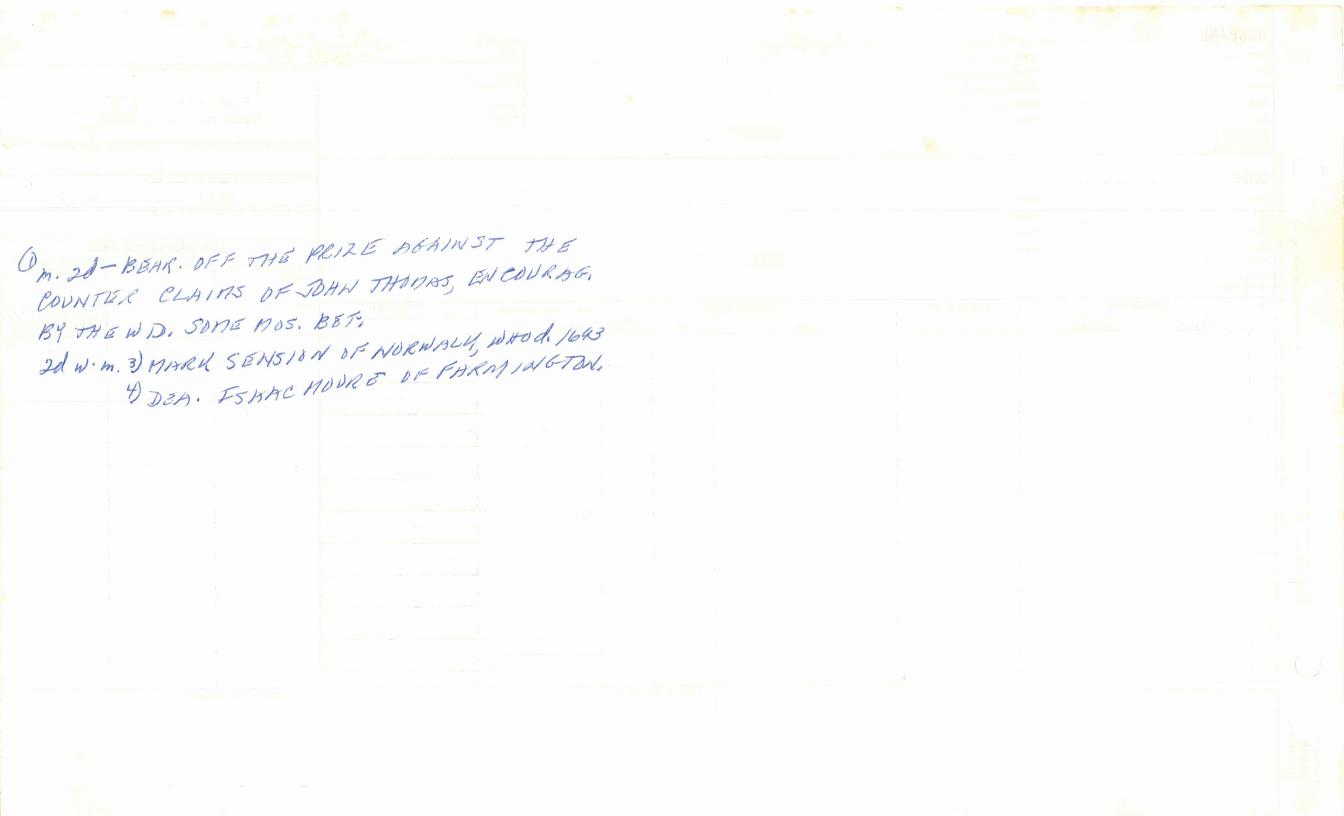 ① m. 2d - BEAR. OFF THE PRIZE AGAINST THE
COUNTER CLAIMS OF JOHN THOMAS, ENCOURAG.
BY THE WD. SOME MOS. BEF.
2d w. m. 3) MARK SENSION OF NORWALK, WHO d. 1693
4) DEA. ISAAC MOORE OF FARMINGTON.